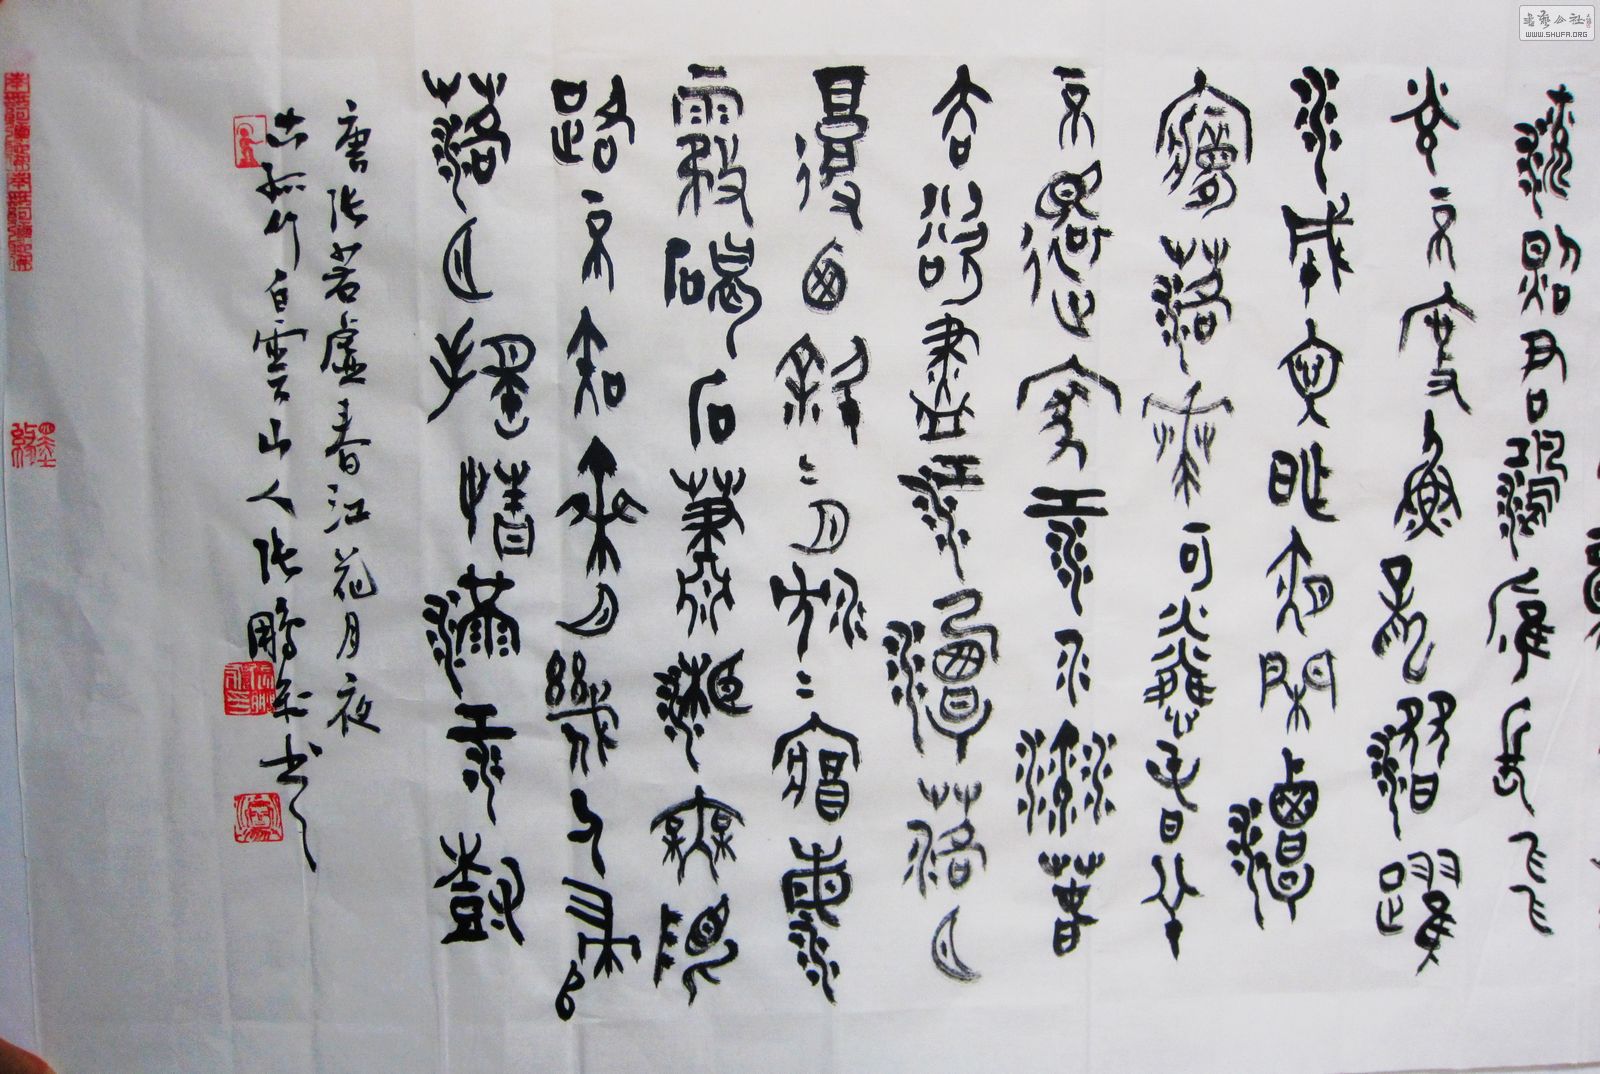 流照君鴻雁長飛
光不度魚龍潛躍
水成文昨夜閑潭
夢落花可憐春半
不還家江水流春
去欲盡江潭落月
復西斜=月沉=藏海
霧碣石瀟湘無限
路不知乘月幾人歸
落月搖情滿江樹
唐張若虛春江花月夜
古孤竹白雲山人張鵬書
書藝公社
WWW.SHUFA.ORG